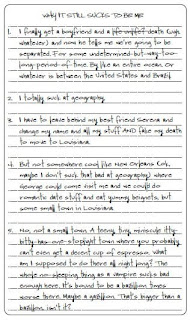 WHY IT STILL SUCKS TO BE ME
1. I finally get a boyfriend and a life-er death (ugh,
whatever) and now he tells me we're going to be
separated. For some undetermined-but-way-too-
long-period-of-time. By like an entire ocean. Or
whatever is between the United States and Brazil.
2. I totally suck at geography.
3. I have to leave behind my best friend Serena and
change my name and all my stuff AND fake my death
to move to Louisiana.
4. But not somewhere cool like New Orleans (ok,
maybe I don't suck that bad at geography) where
George could come visit me and we could do
romantic date stuff and eat yummy beignets, but
some small town in Louisiana.
5. No, not a small town. A teeny, tiny, miniscule itty-
bitty has-one-stoplight town where you probably
can't even get a decent cup of espresso. What
am I supposed to do there all night long? The
whole no-sleeping thing as a vampire sucks bad
enough here. It's bound to be a bazillion times
worse there. Maybe a gazillion. That's bigger than a
bazillion, isn't it?